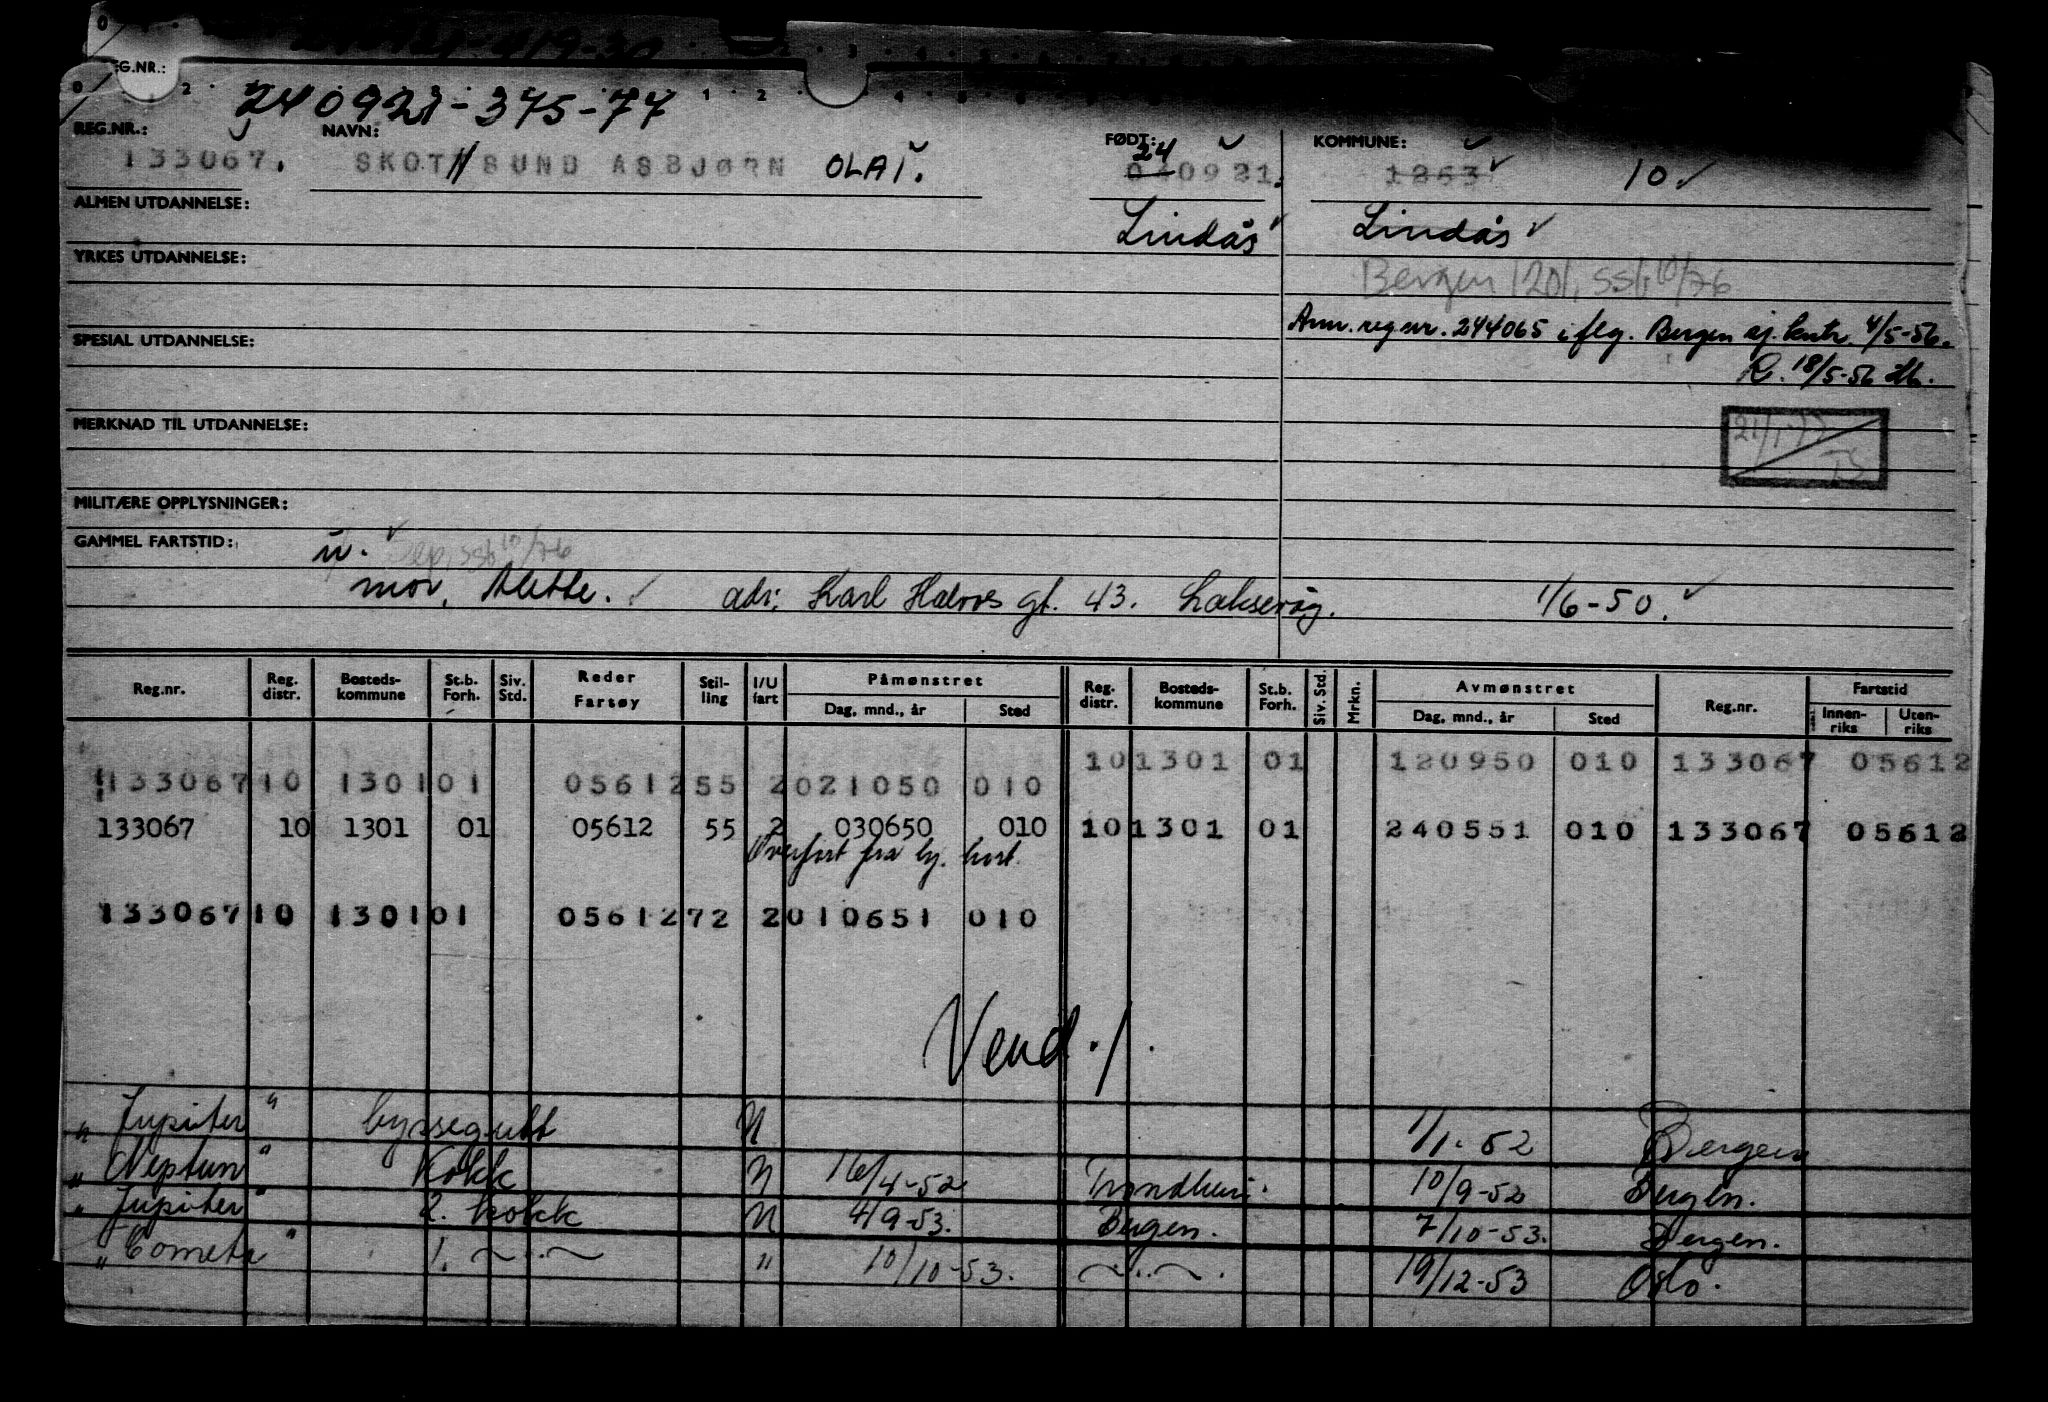 EG.NR.:
240921-375-77
REG.NR.: NAVN: FØDT: KOMMUNE:
133067. SKOTHSUND ASBJØRN OLAI. 24 040921. 1263 10
ALMEN UTDANNELSE: Lindås Lindås
YRKES UTDANNELSE:
Bergen 1201, ssb, 10/76
Ann. reg nr. 244065 i flg. Bergen sj. kntr. 4/5-56.
SPESIAL UTDANNELSE:
R. 18/5-56
MERKNAD TIL UTDANNELSE: 21/1-77 TS
MILITÆRE OPPLYSNINGER:
GAMMEL FARTSTID: u. ssb 10/76
mor, Alette. adr; Karl Halvors gt. 43. Laksevåg. 1/6-50.
Reg.nr. Reg. distr. Bosteds- kommune St.b. Forh. Siv. Std. Reder Fartøy Stil- ling I/U fart Påmønstret Dag, mnd., år Sted Reg. distr. Bosteds- kommune St.b. Forh. Siv. Std. Mrkn. Avmønstret Dag, mnd., år Sted Reg.nr. Fartstid Innen- riks Uten- riks
133067 10 1301 01 05612 55 2 021050 010 10 1301 01 120950 010 133067 05612
133067 10 1301 01 05612 55 2 030650 010 10 1301 01 240551 010 133067 05612
Overført fra ny. kort.
133067 10 1301 01 05612 72 2 010651 010
Vend./.
" Jupiter " byssegutt N 1/1-52 Bergen
" Neptun " Kokk N 16/4-52 Trondheim. 10/9-52 Bergen.
" Jupiter " 2. kokk N 4/9-53. Bergen. 7/10-53. Bergen.
" Cometa " 1. ~ " ~ " 10/10-53. ~ " ~ . 19/12-53 Oslo.